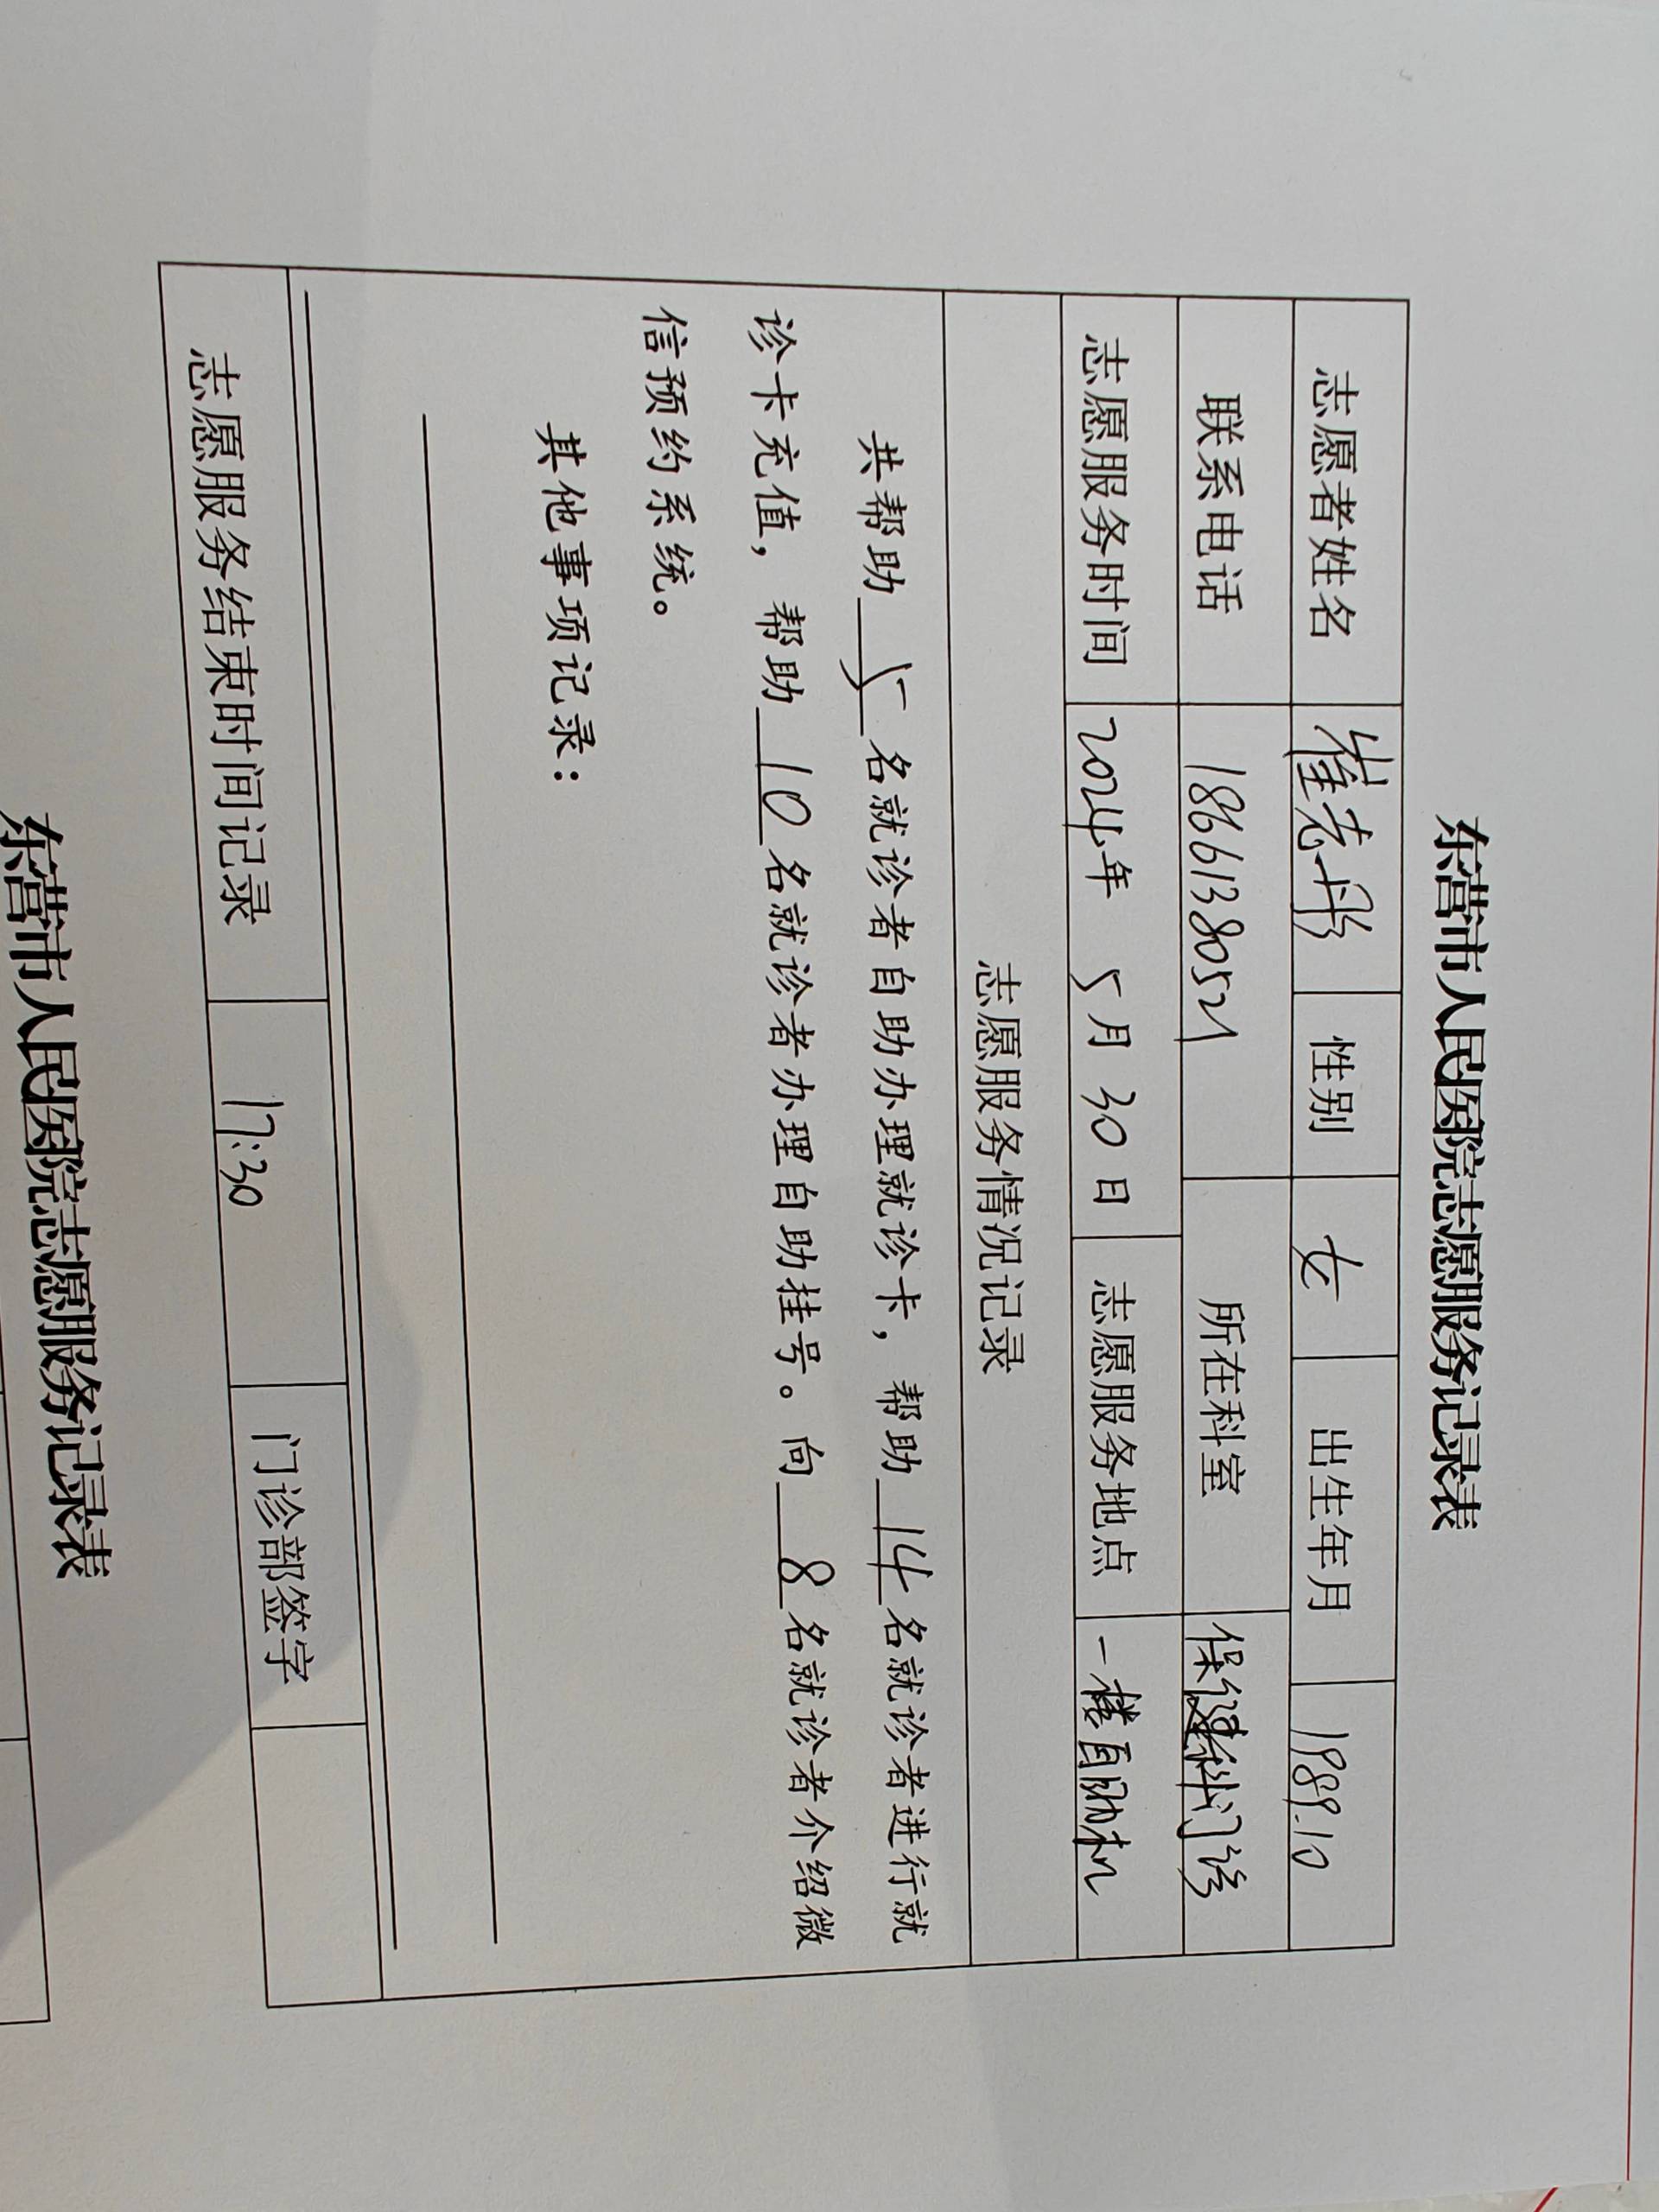 东营市人民医院志愿服务记录表
志愿者姓名 崔志彤 性别 女 出生年月 1989.10
联系电话 18661380521 所在科室 保健科门诊
志愿服务时间 2024年 5月 30日 志愿服务地点 一楼自助机
志愿服务情况记录
共帮助 5 名就诊者自助办理就诊卡，帮助 14 名就诊者进行就
诊卡充值，帮助 10 名就诊者办理自助挂号。向 8 名就诊者介绍微
信预约系统。
其他事项记录：
志愿服务结束时间记录 17:30 门诊部签字
东营市人民医院志愿服务记录表